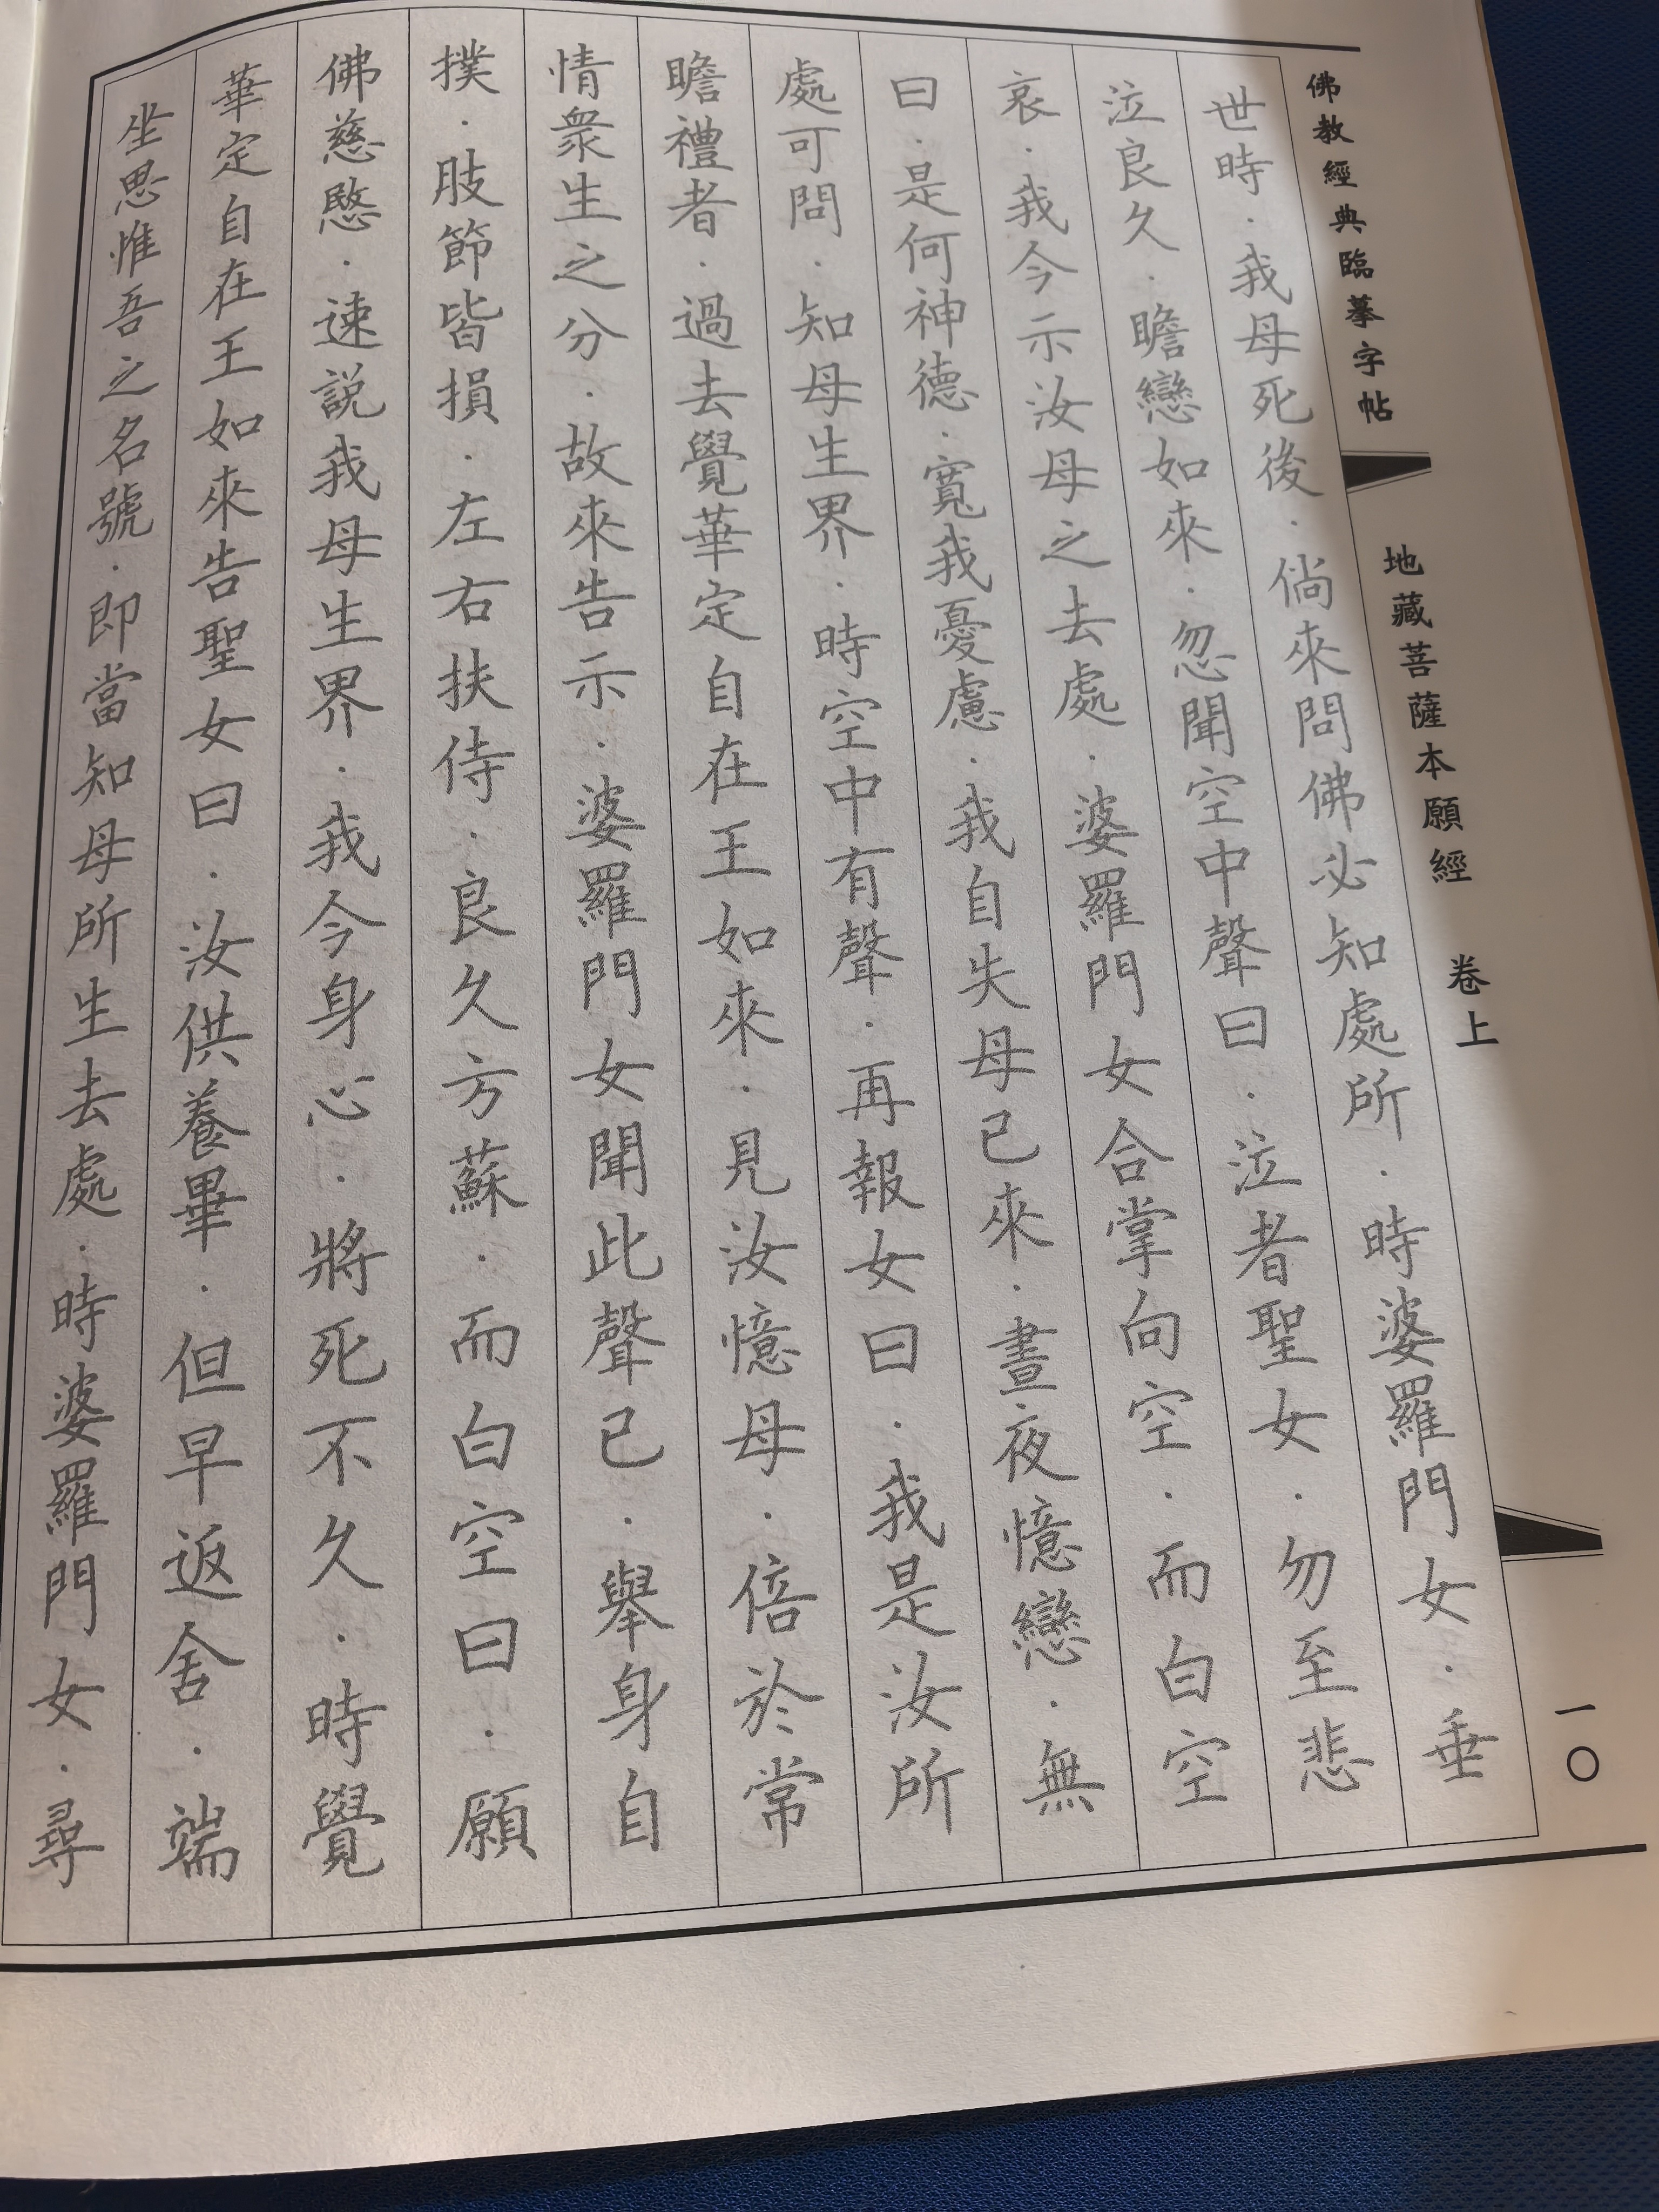 佛教經典臨摹字帖
地藏菩薩本願經 卷上
一〇
世時．我母死後．倘來問佛必知處所．時婆羅門女．垂
泣良久．瞻戀如來．忽聞空中聲曰．泣者聖女．勿至悲
哀．我今示汝母之去處．婆羅門女合掌向空．而白空
曰．是何神德．寬我憂慮．我自失母已來．晝夜憶戀．無
處可問．知母生界．時空中有聲．再報女曰．我是汝所
瞻禮者．過去覺華定自在王如來．見汝憶母．倍於常
情衆生之分．故來告示．婆羅門女聞此聲已．舉身自
撲．肢節皆損．左右扶侍．良久方蘇．而白空曰．願
佛慈愍．速説我母生界．我今身心．將死不久．時覺
華定自在王如來告聖女曰．汝供養畢．但早返舍．端
坐思惟吾之名號．即當知母所生去處．時婆羅門女．尋